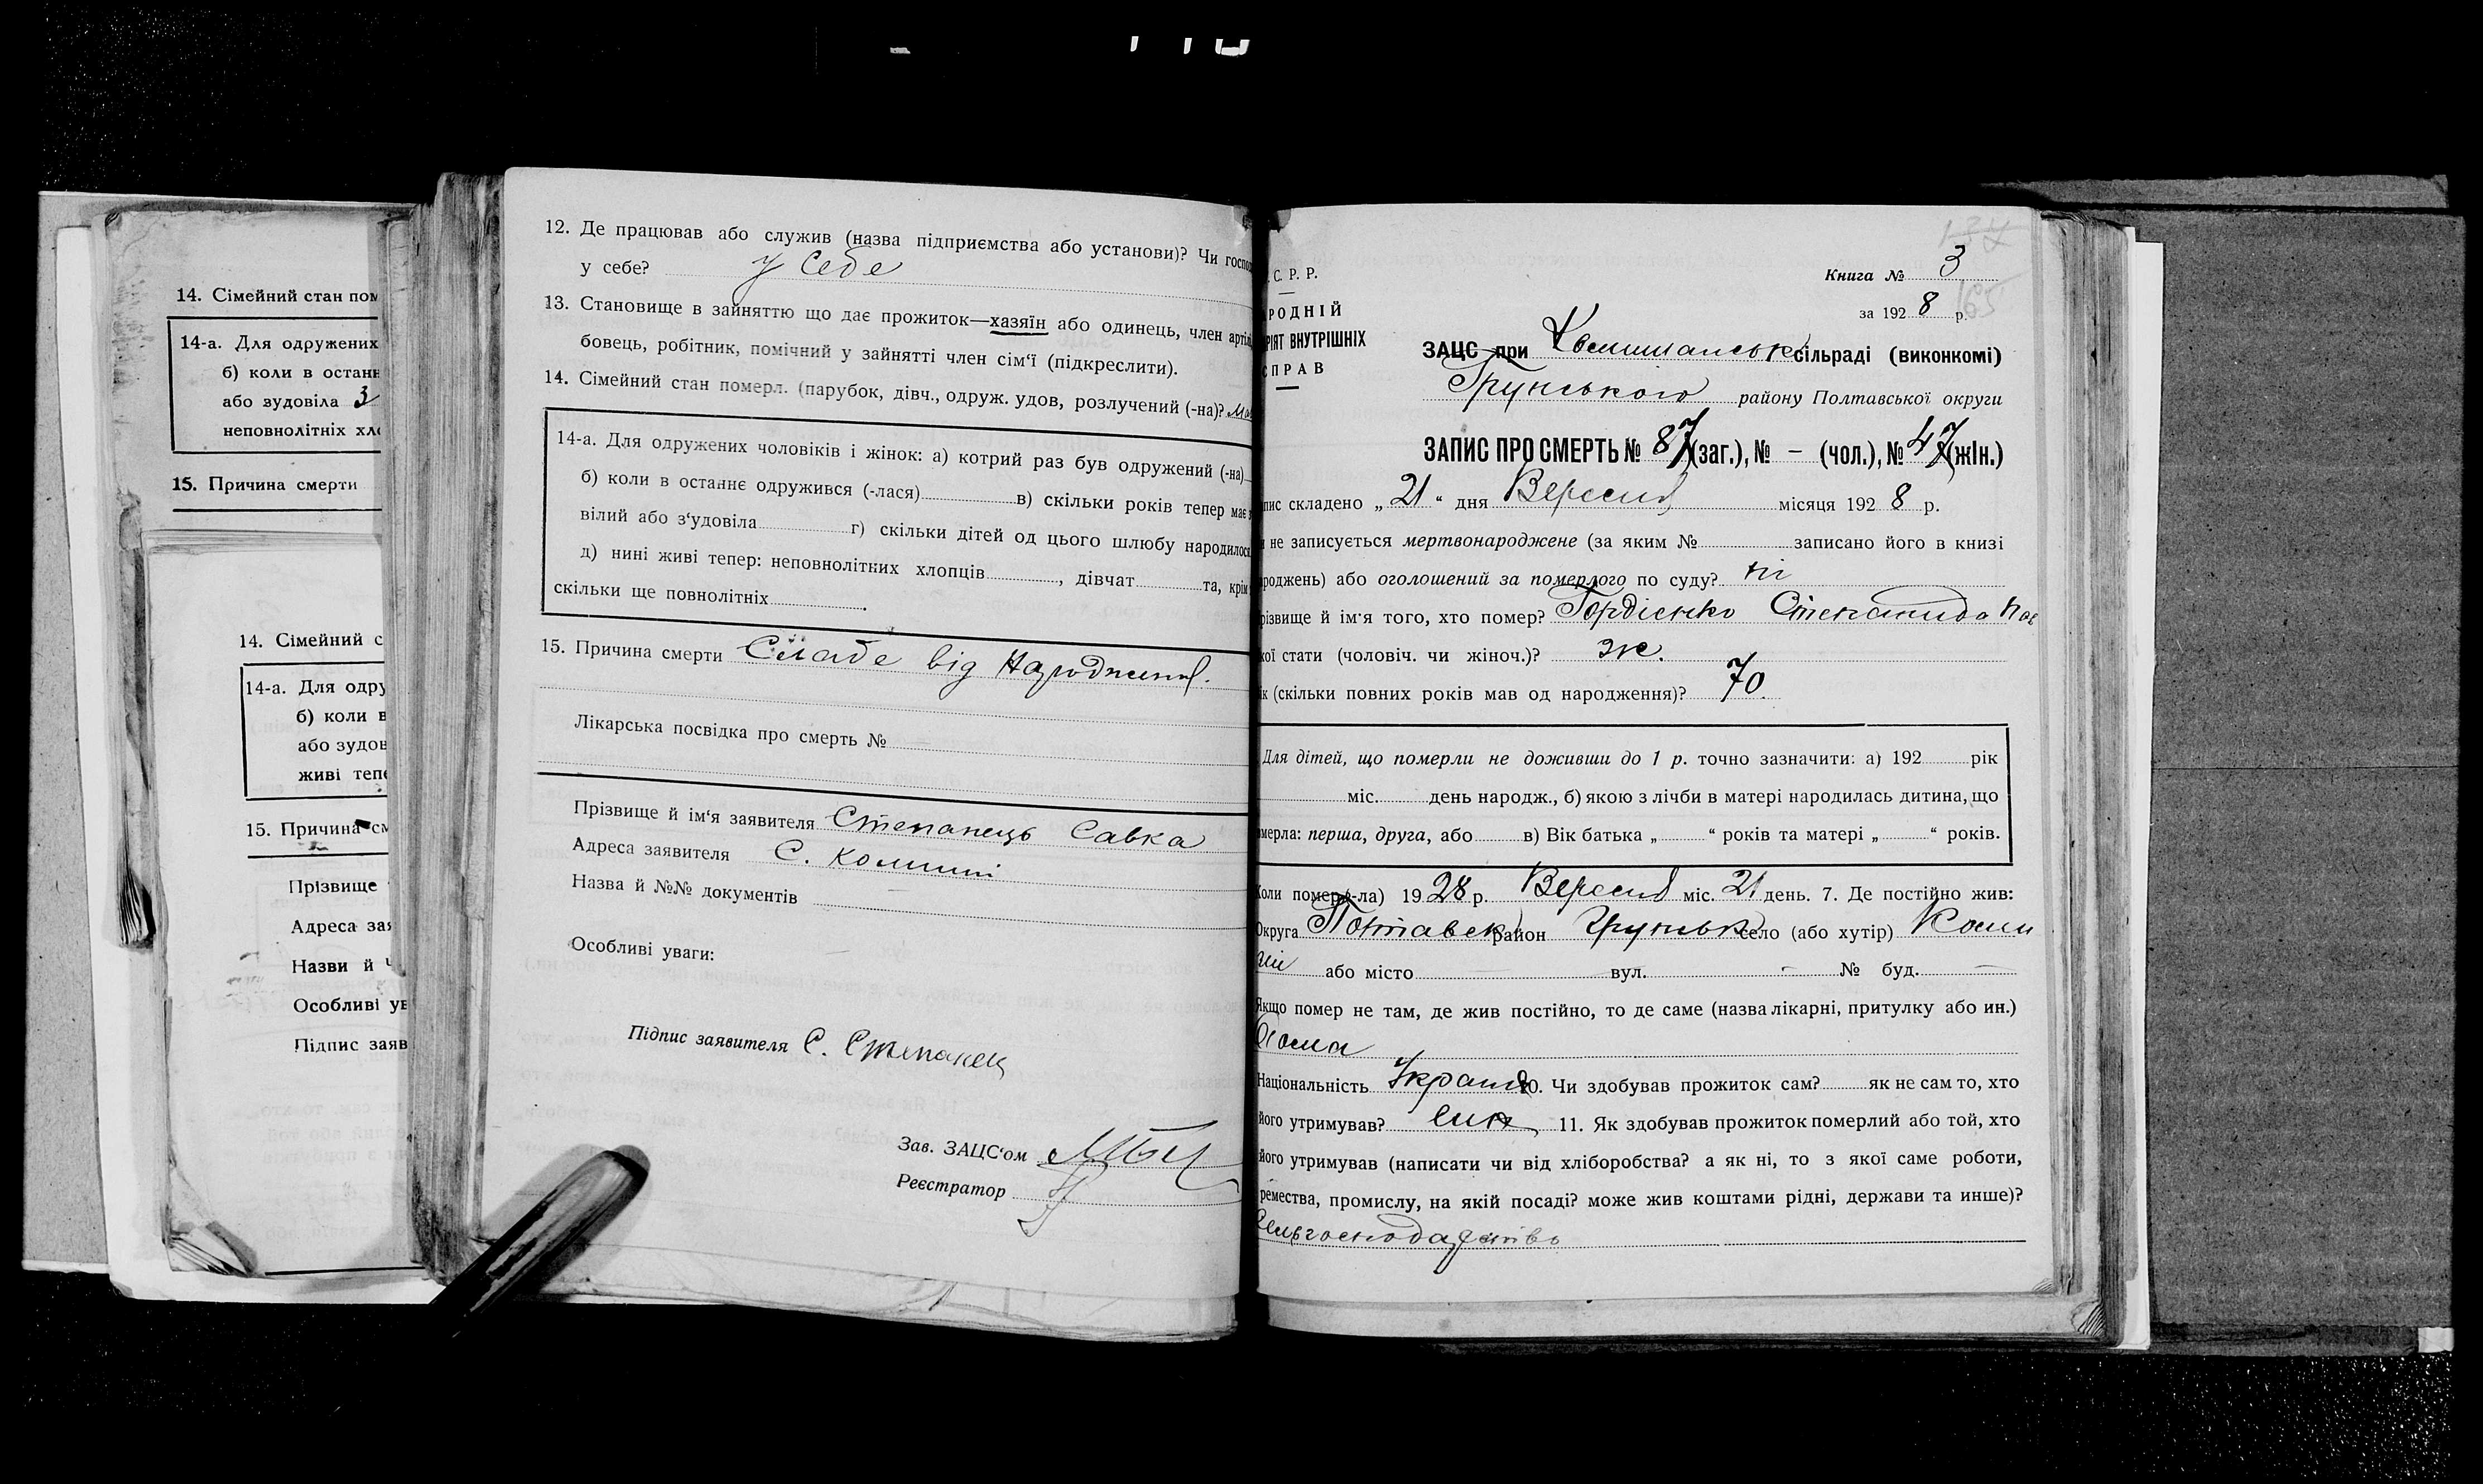 14. Сімейний стан пом
14-а. Для одружених
б) коли в останн
або зудовіла 3
неповнолітніх хло
15. Причина смерти
14. Сімейний с
14-а. Для одру
б) коли в
або зудов
живі тепе
15. Причина см
Прізвище
Адреса зая
Назви й
Особливі ув
Підпис заяв
12. Де працював або служив (назва підприємства або установи)? Чи госпо
у себе? у себе
13. Становище в зайняттю що дає прожиток—хазяїн або одинець, член артіл
бовець, робітник, помічний у зайнятті член сім‘ї (підкреслити).
14. Сімейний стан померл. (парубок, дівч., одруж. удов, розлучений (-на)?
14-а. Для одружених чоловіків і жінок: а) котрий раз був одружений (-на)
б) коли в останнє одружився (-лася) в) скільки років тепер має з
вілий або з‘удовіла г) скільки дітей од цього шлюбу народилося
д) нині живі тепер: неповнолітних хлопців , дівчат та, крім
скільки ще повнолітніх .
15. Причина смерти Слабе від Народження.
Лікарська посвідка про смерть №
Прізвище й ім‘я заявителя Степанець Савка
Адреса заявителя С. Комиші
Назва й №№ документів —
Особливі уваги: —
Підпис заявителя С. Степанец
Зав. ЗАЦС‘ом
Реєстратор
С. Р. Р.
РОДНІЙ
РІЯТ ВНУТРІШНІХ
СПРАВ
Книга № 3
за 192 8 р.
165
ЗАЦС при сільраді (виконкомі)
Грунського району Полтавської округи
ЗАПИС ПРО СМЕРТЬ № 87 (заг.), № — (чол.), № 47 (жін.)
пис складено „ 21 “ дня Вересня місяця 192 8 р.
и не записується мертвонароджене (за яким № записано його в книзі
роджень) або оголошений за померлого по суду? ні
різвище й ім‘я того, хто помер? Гордієнко Степанида Пав
кої стати (чоловіч. чи жіноч.)? ж.
ік (скільки повних років мав од народження)? 70.
Для дітей, що померли не доживши до 1 р. точно зазначити: а) 192 рік
міс. день народж., б) якою з лічби в матері народилась дитина, що
мерла: перша, друга, або в) Вік батька „ “ років та матері „ “ років.
Коли помер (-ла) 19 28 р. Вересня міс. 21 день. 7. Де постійно жив:
Округа Полтавськ район Грунськ село (або хутір) Коми
ші або місто — вул. — № буд. —
Якщо помер не там, де жив постійно, то де саме (назва лікарні, притулку або ин.)
Дома
Національність Україн 10. Чи здобував прожиток сам? як не сам то, хто
його утримував? син 11. Як здобував прожиток померлий або той, хто
його утримував (написати чи від хліборобства? а як ні, то з якої саме роботи,
ремества, промислу, на якій посаді? може жив коштами рідні, держави та инше)?
Сельгосподарство